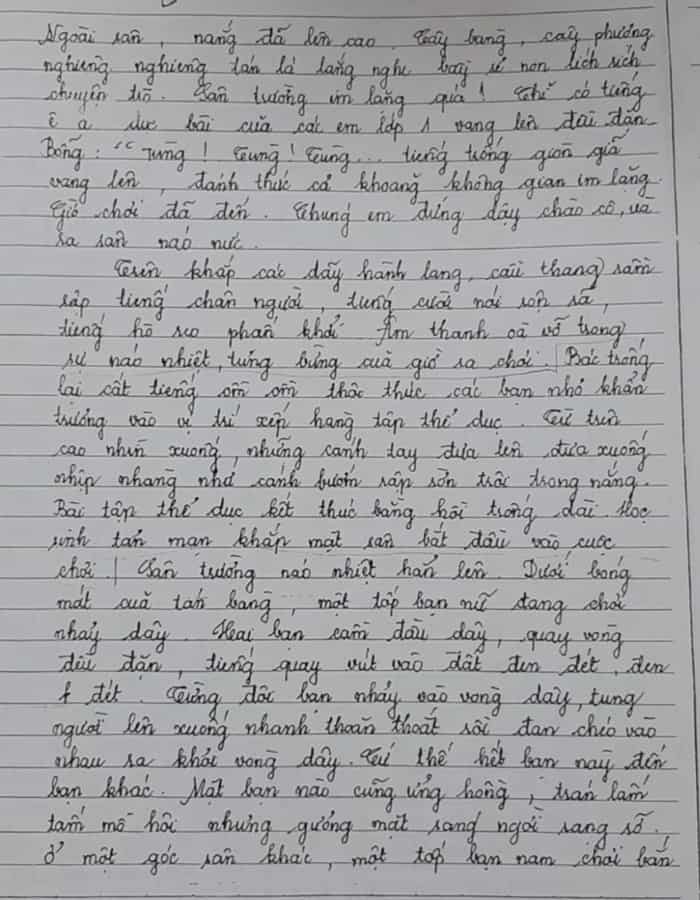 Ngoài sân, nắng đã lên cao. Cây bàng, cây phượng
nghiêng nghiêng tán lá lắng nghe bầy sẻ non lích rích
chuyện trò. Sân trường im lặng quá! Chỉ có tiếng
ê a đọc bài của các em lớp 1 vang lên đều đặn
Bỗng: "Tùng! Tùng! Tùng... tiếng trống giòn giã
vang lên, đánh thức cả khoảng không gian im lặng.
Giờ chơi đã đến. Chúng em đứng dậy chào cô, và
ra sân náo nức.
Trên khắp các dãy hành lang, cầu thang rầm
rập tiếng chân người, tiếng cười nói rộn rã,
tiếng hò reo phấn khởi. Âm thanh oà vỡ trong
sự náo nhiệt, tưng bừng của giờ ra chơi. Bác trống
lại cất tiếng ồm ồm thôc thúc các bạn nhỏ khẩn
trương vào vị trí xếp hàng tập thể dục. Từ trên
cao nhìn xuống, những cánh tay đưa lên đưa xuống
nhịp nhàng như cánh bướm rập rờn trôi trong nắng.
Bài tập thể dục kết thúc bằng hồi trống dài. Học
sinh tản mạn khắp mặt sân bắt đầu vào cuộc
chơi. Sân trường náo nhiệt hẳn lên. Dưới bóng
mát của tán bàng, một tốp bạn nữ đang chơi
nhảy dây. Hai bạn cầm đầu dây, quay vòng
đều đặn, tiếng quay vút vào đất đen đét, đen
đét. Từng đôc bạn nhảy vào vòng dây, tung
người lên xuống nhanh thoăn thoắt rồi đan chéo vào
nhau ra khỏi vòng dây. Cứ thế hết bạn này đến
bạn khác. Mặt bạn nào cũng ửng hồng, trán lấm
tấm mồ hôi nhưng gương mặt sáng ngời rạng rỡ.
Ở một góc sân khác, một tốp bạn nam chơi bắn